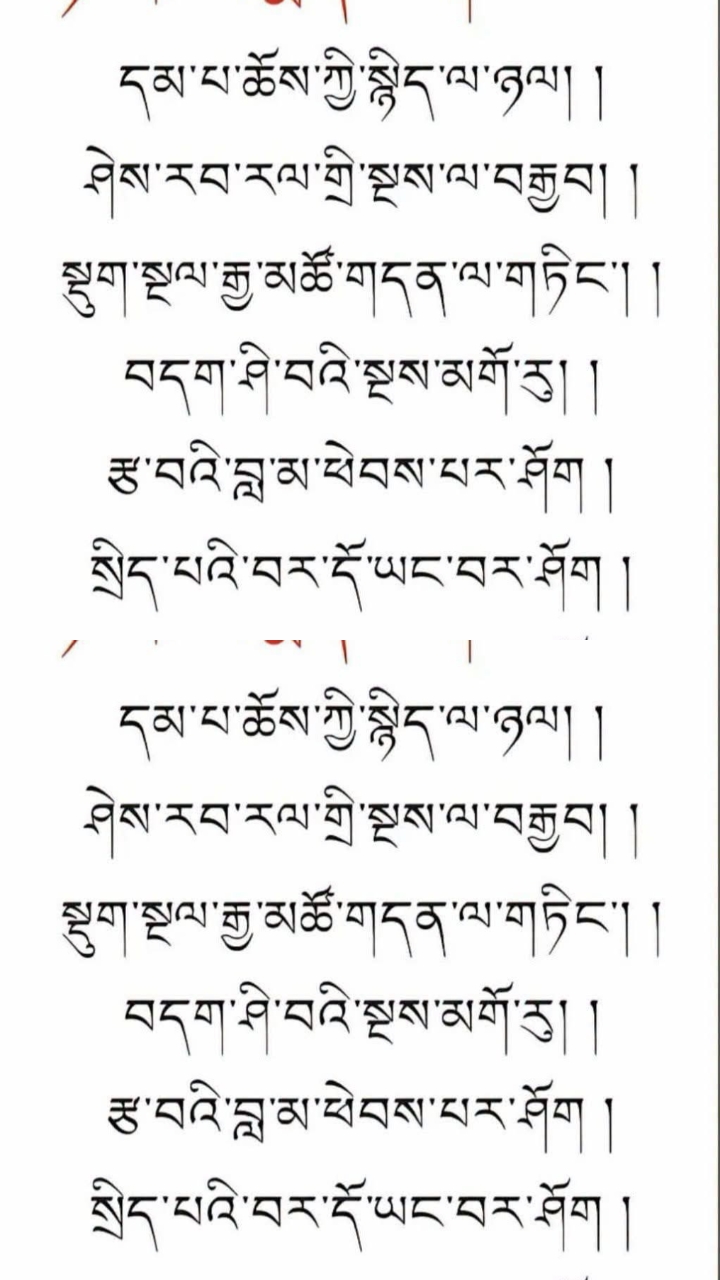 དམ་པ་ཆོས་ཀྱི་སྙིད་ལ་ཉལ། །
ཤེས་རབ་རལ་གྲི་སྔས་ལ་བརྒྱབ། །
སྡུག་སྔལ་རྒྱ་མཚོ་གདན་ལ་གཏིང་། །
བདག་ཤི་བའི་སྔས་མགོ་རུ། །
རྩ་བའི་བླ་མ་ཕེབས་པར་ཤོག །
སྲིད་པའི་བར་དོ་ཡང་བར་ཤོག །
དམ་པ་ཆོས་ཀྱི་སྙིད་ལ་ཉལ། །
ཤེས་རབ་རལ་གྲི་སྔས་ལ་བརྒྱབ། །
སྡུག་སྔལ་རྒྱ་མཚོ་གདན་ལ་གཏིང་། །
བདག་ཤི་བའི་སྔས་མགོ་རུ། །
རྩ་བའི་བླ་མ་ཕེབས་པར་ཤོག །
སྲིད་པའི་བར་དོ་ཡང་བར་ཤོག །